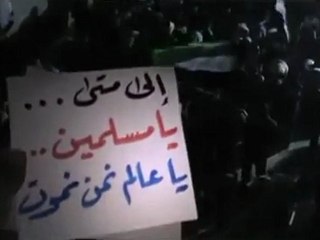 إلى متى ...
يا مسلمين ..
يا عالم نحن نموت